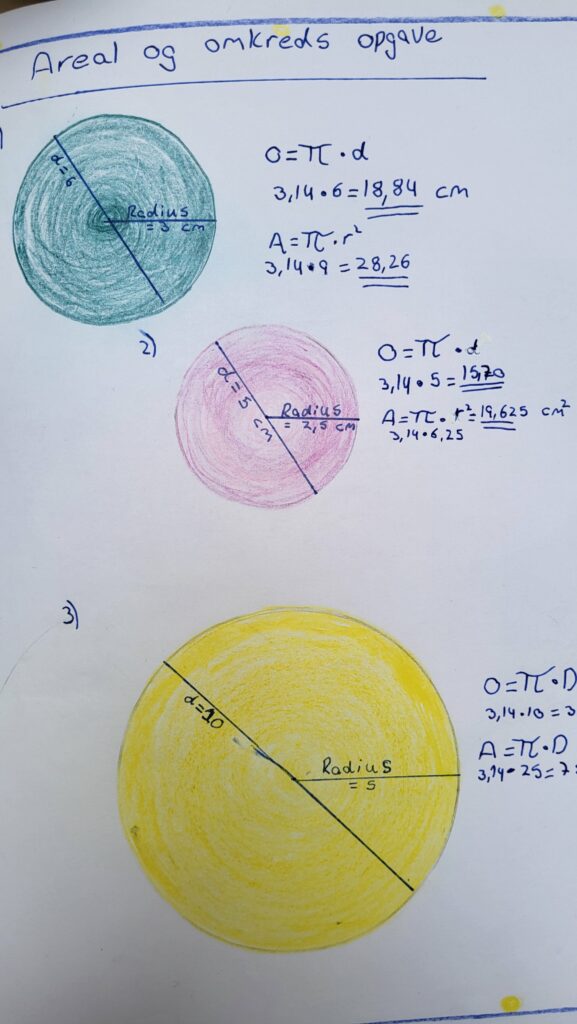 Areal og omkreds opgave
d=6
Radius
= 3 cm
O=π·d
3,14·6=18,84 cm
A=π·r²
3,14·9=28,26
2)
d=5 cm
Radius
= 2,5 cm
O=π·d
3,14·5=15,70
A=π·r²=19,625 cm²
3,14·6,25
3)
d=10
Radius
= 5
O=π·D
3,14·10=3
A=π·D
3,14·25=7